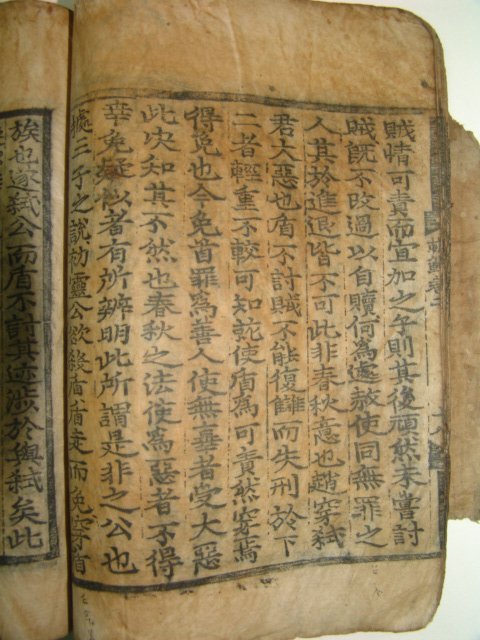 賊情可責而宜加之乎則其後頑然未嘗討
賊既不改過以自贖何為遽赦使同無罪之
人其於進退皆不可此非春秋意也趙穿弑
君大惡也盾不討賊不能復讎而失刑於下
二者輕重不較可知就使盾為可責然穿焉
得免也今免首罪為善人使無辜者受大惡
此决知其不然也春秋之法使為惡者不得
幸免疑似者有所辨明此所謂是非之公也
據三子之說初靈公欲殺盾盾走而免穿盾
族也遂弑公而盾不討其迹涉於與弑矣此